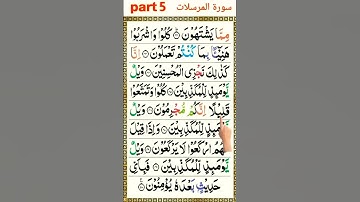 part 5 سورة المرسلات
مِمَّا يَشْتَهُوْنَ ۝ كُلُوْا وَاشْرَبُوْا
هَنِيْٓـًٔۢا بِمَا كُنْتُمْ تَعْمَلُوْنَ ۝ اِنَّا
كَذٰلِكَ نَجْزِى الْمُحْسِنِيْنَ ۝ وَيْلٌ
يَّوْمَىِٕذٍ لِّلْمُكَذِّبِيْنَ ۝ كُلُوْا وَتَمَتَّعُوْا
قَلِيْلًا اِنَّكُمْ مُّجْرِمُوْنَ ۝ وَيْلٌ
يَّوْمَىِٕذٍ لِّلْمُكَذِّبِيْنَ ۝ وَاِذَا قِيْلَ
لَهُمُ ارْكَعُوْا لَا يَرْكَعُوْنَ ۝ وَيْلٌ
يَّوْمَىِٕذٍ لِّلْمُكَذِّبِيْنَ ۝ فَبِاَىِّ
حَدِيْثٍۭ بَعْدَهٗ يُؤْمِنُوْنَ ۝